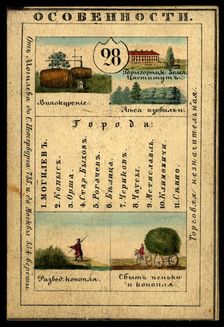 ОСОБЕННОСТИ.
28
Винокуреніе
Горыгорецк. Земл.
Институтъ.
Лѣса изобильн.
Города:
1. МОГИЛЕВЪ.
2. Копысъ.
3. Орша.
4. Стар. Быховъ.
5. Рогачевъ.
6. Бѣлица.
7. Чериковъ.
8. Чаусы.
9. Мстиславль.
10. Климовичи.
11. Сѣнно.
Развед. конопля.
Сбытъ пеньки
и конопля.
Отъ Могилева до С. Петербурга 735, до Москвы 554 версты.
Торговля незначительная.